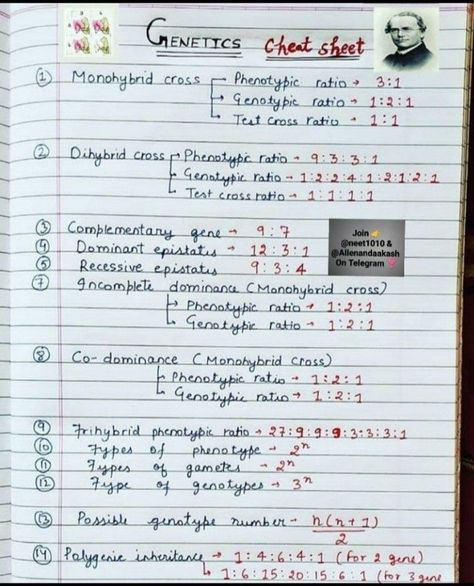 GENETICS Cheat sheet
① Monohybrid cross → Phenotypic ratio → 3:1
→ Genotypic ratio → 1:2:1
→ Test cross ratio → 1:1
② Dihybrid cross → Phenotypic ratio → 9:3:3:1
→ Genotypic ratio → 1:2:2:4:1:2:1:2:1
→ Test cross ratio → 1:1:1:1
③ Complementary gene → 9:7
④ Dominant epistatis → 12:3:1
⑤ Recessive epistatis 9:3:4
Join 👉
@neet1010 &
@Allenandaakash
On Telegram 💗
⑦ Incomplete dominance (Monohybrid cross)
→ Phenotypic ratio → 1:2:1
→ Genotypic ratio → 1:2:1
⑧ Co-dominance (Monohybrid Cross)
→ Phenotypic ratio → 1:2:1
→ Genotypic ratio → 1:2:1
⑨ Trihybrid phenotypic ratio → 27:9:9:9:3:3:3:1
⑩ Types of phenotype → 2ⁿ
⑪ Types of gametes → 2ⁿ
⑫ Type of genotypes → 3ⁿ
⑬ Possible genotype number - n(n+1)
2
⑭ Polygenic inheritance → 1:4:6:4:1 (for 2 gene)
→ 1:6:15:20:15:6:1 (for 3 gene